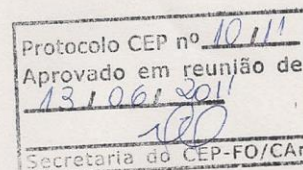 Protocolo CEP nº 10/11
Aprovado em reunião de
13/06/2011
Secretaria do CEP-FO/CAr